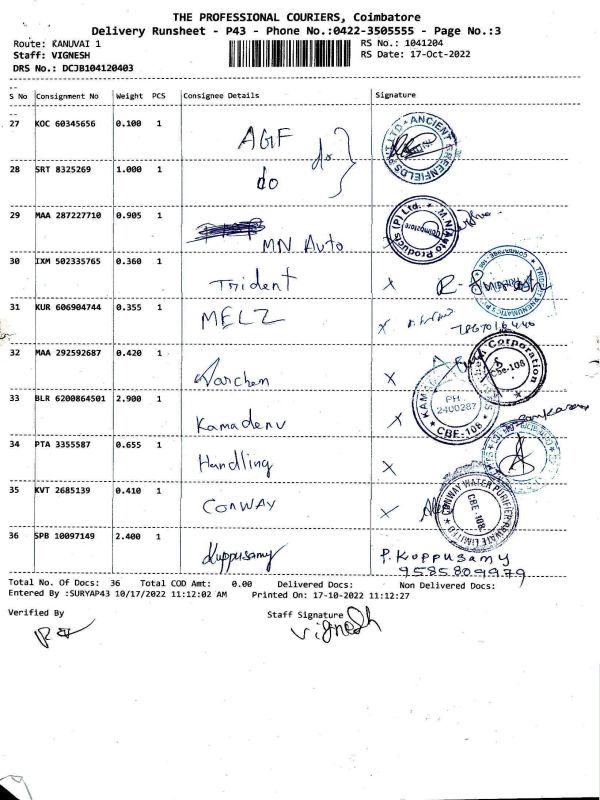 THE PROFESSIONAL COURIERS, Coimbatore
Delivery Runsheet - P43 - Phone No.:0422-3505555 - Page No.:3
Route: KANUVAI 1
RS No.: 1041204
Staff: VIGNESH
RS Date: 17-Oct-2022
DRS No.: DCJB104120403
S No Consignment No Weight PCS Consignee Details Signature
27 KOC 60345656 0.100 1 AGF do
ANCIENT GREENFIELDS PVT LTD
28 SRT 8325269 1.000 1 do
29 MAA 287227710 0.905 1 MN Auto
M.N. Auto Products (P) Ltd. Coimbatore
30 IXM 502335765 0.360 1 Trident x
31 KUR 606904744 0.355 1 MELZ x
32 MAA 292592687 0.420 1 x
Corporation CBE-108
33 BLR 6200864501 2.900 1 Kamadenu x
PH. 2400287 CBE-108
34 PTA 3355587 0.655 1 Handling x
35 KVT 2685139 0.410 1 CONWAY x
CONWAY WATER PURIFIER PRIVATE LIMITED CBE-108
36 SPB 10097149 2.400 1 Kuppusamy P. Kuppusamy
9585809979
Total No. Of Docs: 36 Total COD Amt: 0.00 Delivered Docs: Non Delivered Docs:
Entered By :SURYAP43 10/17/2022 11:12:02 AM Printed On: 17-10-2022 11:12:27
Verified By Staff Signature
Vignesh